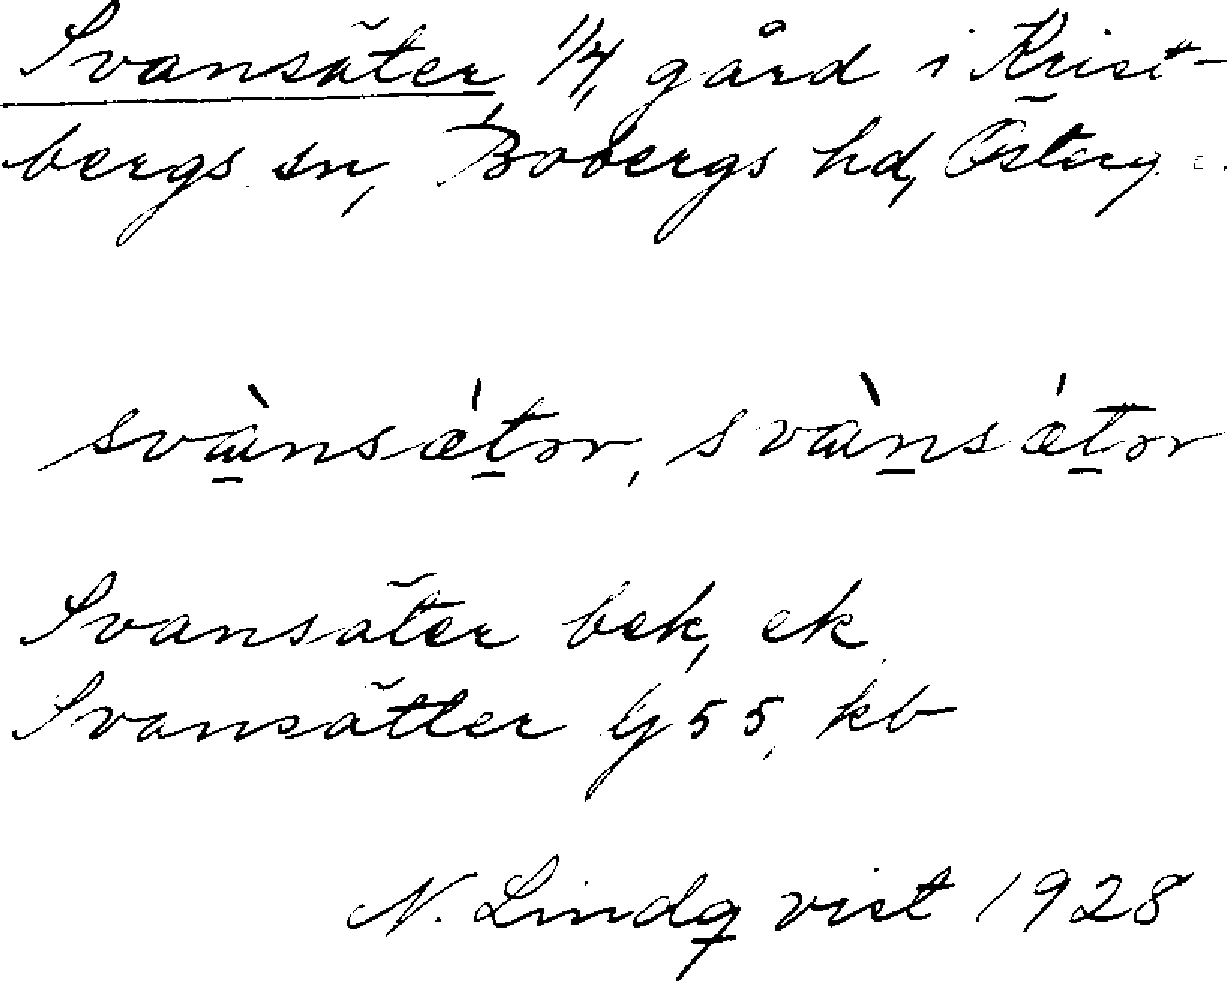 Svansäter, 1/4, gård i Krist-
bergs sn, Bobergs hd, Österg.
svànsǽtər, svànsǽtər
Svansäter bek, ek
Svansätter lj 55, kb
N. Lindqvist 1928